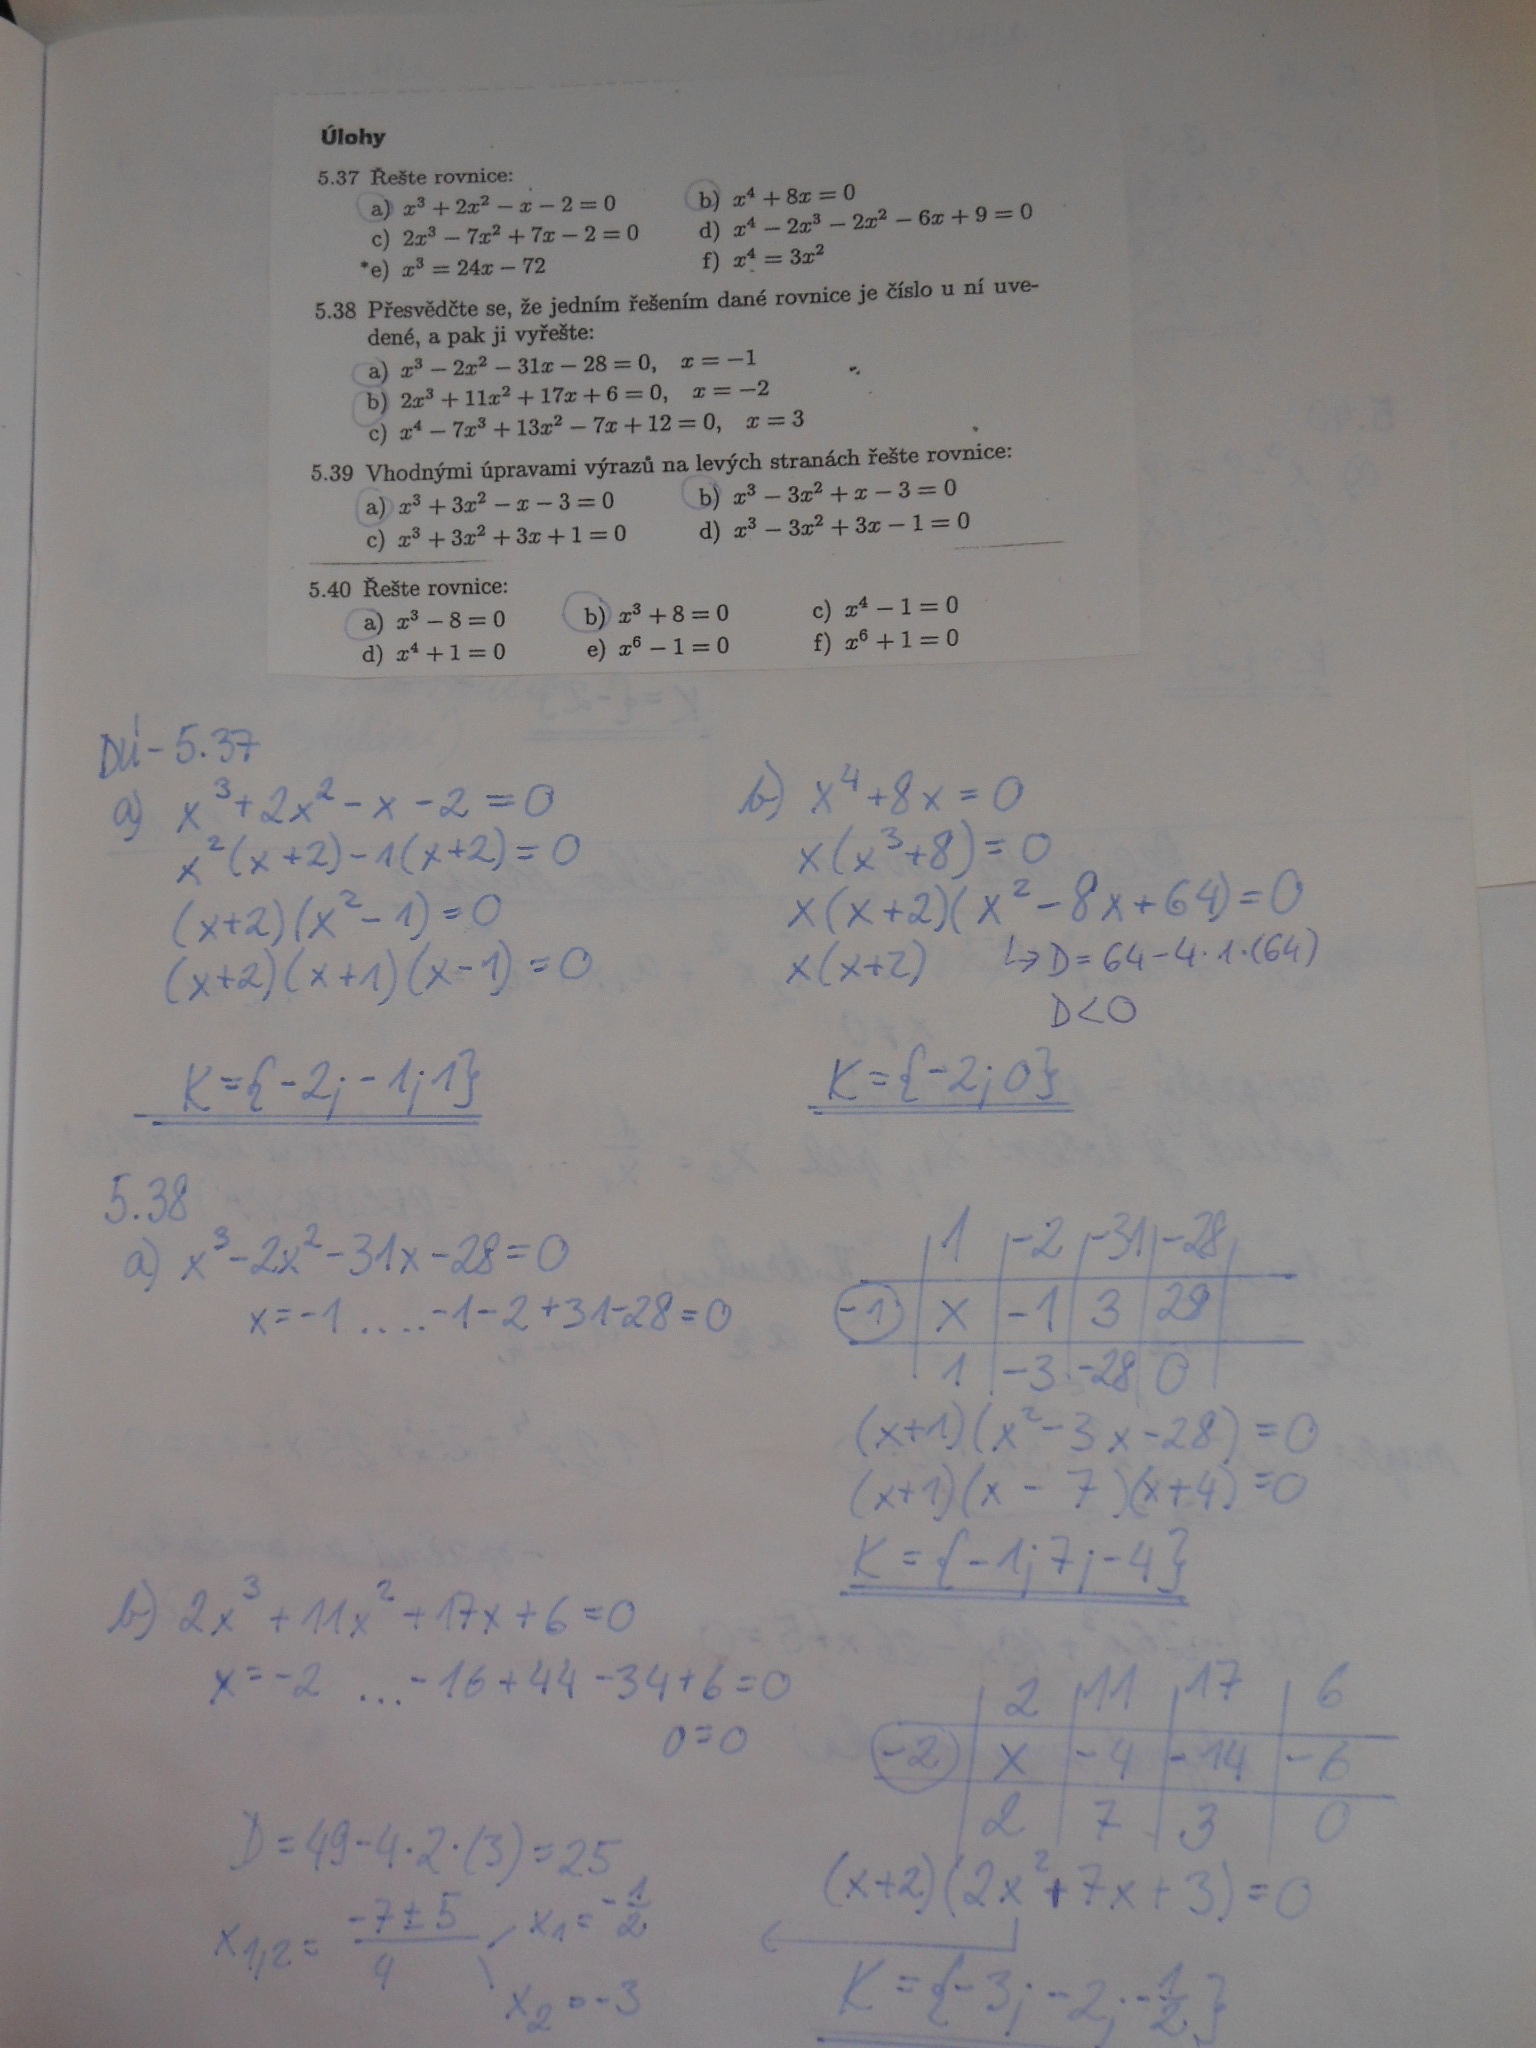 Úlohy
5.37 Řešte rovnice:
a) x³ + 2x² − x − 2 = 0 b) x⁴ + 8x = 0
c) 2x³ − 7x² + 7x − 2 = 0 d) x⁴ − 2x³ − 2x² − 6x + 9 = 0
*e) x³ = 24x − 72 f) x⁴ = 3x²
5.38 Přesvědčte se, že jedním řešením dané rovnice je číslo u ní uve-
dené, a pak ji vyřešte:
a) x³ − 2x² − 31x − 28 = 0, x = −1
b) 2x³ + 11x² + 17x + 6 = 0, x = −2
c) x⁴ − 7x³ + 13x² − 7x + 12 = 0, x = 3
5.39 Vhodnými úpravami výrazů na levých stranách řešte rovnice:
a) x³ + 3x² − x − 3 = 0 b) x³ − 3x² + x − 3 = 0
c) x³ + 3x² + 3x + 1 = 0 d) x³ − 3x² + 3x − 1 = 0
5.40 Řešte rovnice:
a) x³ − 8 = 0 b) x³ + 8 = 0 c) x⁴ − 1 = 0
d) x⁴ + 1 = 0 e) x⁶ − 1 = 0 f) x⁶ + 1 = 0
DÚ - 5.37
a) x³+2x²-x-2=0
x²(x+2)-1(x+2)=0
(x+2)(x²-1)=0
(x+2)(x+1)(x-1)=0
K={-2;-1;1}
b) x⁴+8x=0
x(x³+8)=0
x(x+2)(x²-8x+64)=0
x(x+2) ↳ D=64-4·1·(64)
D<0
K={-2;0}
5.38
a) x³-2x²-31x-28=0
x=-1 ....-1-2+31-28=0
1 -2 -31 -28
-1 x -1 3 28
1 -3 -28 0
(x+1)(x²-3x-28)=0
(x+1)(x-7)(x+4)=0
K={-1;7;-4}
b) 2x³+11x²+17x+6=0
x=-2 ...-16+44-34+6=0
0=0
2 11 17 6
-2 x -4 -14 -6
2 7 3 0
(x+2)(2x²+7x+3)=0
D=49-4·2·(3)=25
x₁,₂= -7±5/4 x₁=-1/2
x₂=-3
K={-3;-2;-1/2}